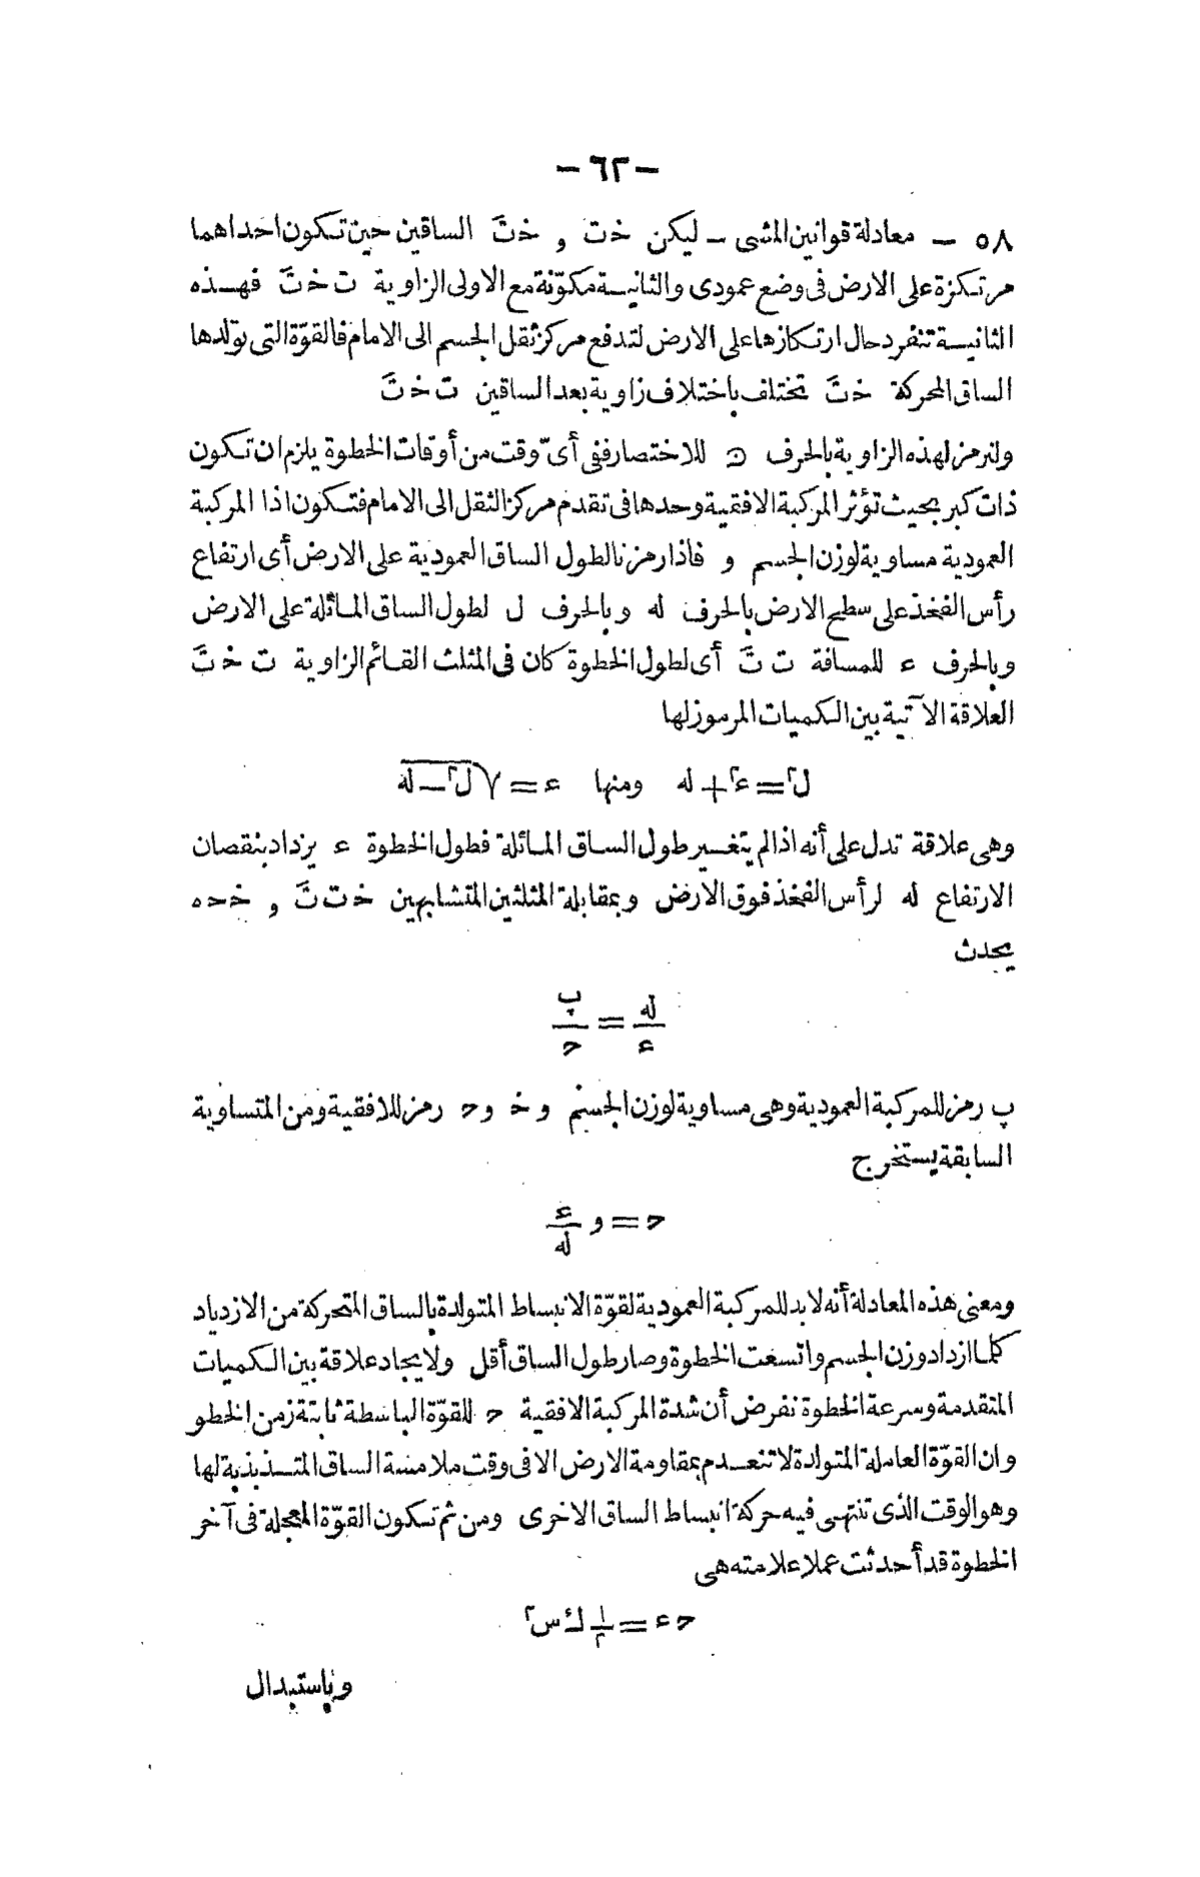 — ٦٢ —
٥٨ — معادلة قوانين المشى — ليكن خ ت و خ تَ الساقين حين تكون احداهما
مرتكزة على الارض فى وضع عمودى والثانيـة مكوّنة مع الاولى الزاوية ت خ تَ فهـذه
الثانيـة تنفرد حال ارتكازها على الارض لتدفع مركز ثقل الجسم الى الامام فالقوّة التى تولدها
الساق المحركة خ تَ تختلف باختلاف زاوية بعد الساقين ت خ تَ
ولنرمز لهذه الزاوية بالحرف للاختصار ففى أىّ وقت من أوقات الخطوة يلزم ان تكون
ذات كبر بحيث تؤثر المركبة الافقية وحدها فى تقدم مركز الثقل الى الامام فتكون اذا المركبة
العمودية مساوية لوزن الجسم و فاذا رمزنا لطول الساق العمودية على الارض أى ارتفاع
رأس الفخذ على سطح الارض بالحرف له وبالحرف ل لطول الساق المائلة على الارض
وبالحرف ء للمسافة ت تَ أى لطول الخطوة كان فى المثلث القائم الزاوية ت خ تَ
العلاقة الآتية بين الكميات المرموز لها
ل٢ = ء٢ + له ومنها ء = √(ل٢ — له)
وهى علاقة تدل على أنه اذا لم يتغـير طول الساق المائلة فطول الخطوة ء يزداد بنقصان
الارتفاع له لرأس الفخذ فوق الارض وبمقابلة المثلثين المتشابهين خ ت تَ و خ حه
يحدث
له/ء = پ/ح
پ رمز للمركبة العمودية وهى مساوية لوزن الجسم و خ و ح رمز للافقية ومن المتساوية
السابقة يستخرج
ح = و ء/له
ومعنى هذه المعادلة أنه لابد للمركبة العمودية لقوّة الانبساط المتولدة بالساق المتحركة من الازدياد
كلما ازداد وزن الجسم واتسعت الخطوة وصار طول الساق أقل ولايجاد علاقة بين الكميات
المتقدمة وسرعة الخطوة نفرض أن شدة المركبة الافقية ح للقوّة الباسطة ثابتة زمن الخطو
وان القوّة العاملة المتولدة لا تنعـدم بمقاومة الارض الا فى وقت ملامسة الساق المتـذبذبة لها
وهو الوقت الذى تنتهى فيه حركة انبساط الساق الاخرى ومن ثم تكون القوّة المعجلة فى آخر
الخطوة قد أحدثت عملا علامته هى
ح ء = ١/٢ ك س٢
وباستبدال